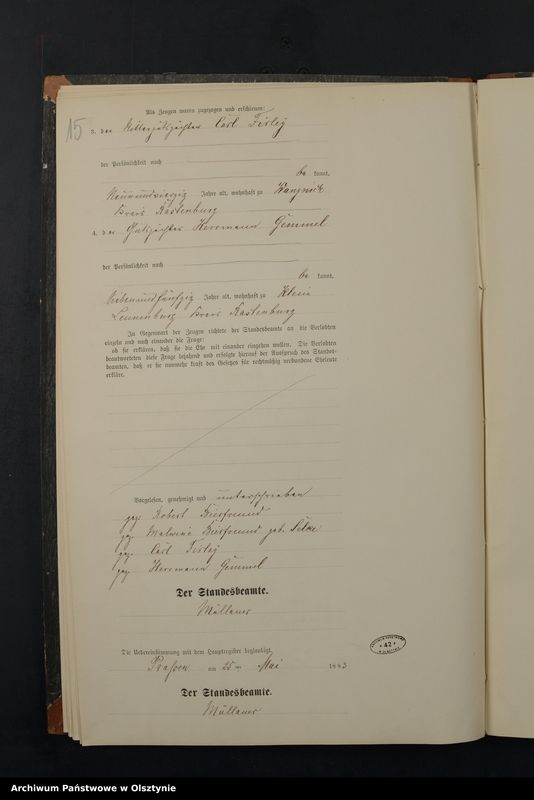 15
Als Zeugen waren zugezogen und erschienen:
3. der Rittergutspächter Carl Ferley
der Persönlichkeit nach
be kannt,
Neunundvierzig Jahre alt, wohnhaft zu
Kreis Rastenburg
4. der Gutspächter Herrmann Gemmel
der Persönlichkeit nach
be kannt,
Siebenundfünfzig Jahre alt, wohnhaft zu Klein
Kreis Rastenburg
In Gegenwart der Zeugen richtete der Standesbeamte an die Verlobten
einzeln und nach einander die Frage:
ob sie erklären, daß sie die Ehe mit einander eingehen wollen. Die Verlobten
beantworteten diese Frage bejahend und erfolgte hierauf der Ausspruch des Standes-
beamten, daß er sie nunmehr kraft des Gesetzes für rechtmäßig verbundene Eheleute
erkläre.
Vorgelesen, genehmigt und unterschrieben
gez. Robert Bierfreund
gez. Malwine Bierfreund geb.
gez. Carl Ferley
gez. Herrmann Gemmel
Der Standesbeamte.
Müllauer
Die Uebereinstimmung mit dem Hauptregister beglaubigt.
Prassen am 25 ten Mai 1883
Der Standesbeamte.
Müllauer
42
Archiwum Państwowe w Olsztynie